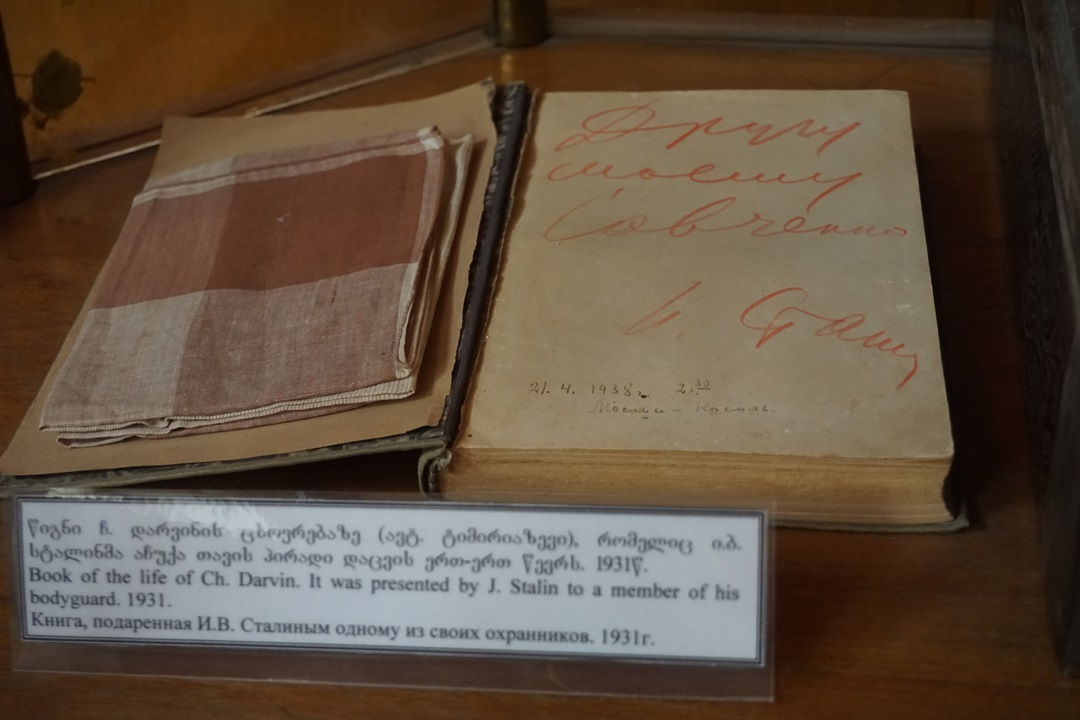 Другу
моему
Савченко
И. Стали
21. 4. 1938г. 2.30
Москва - Кремль.
წიგნი ჩ. დარვინის ცხოვრებაზე (ავტ. ტიმირიაზევი), რომელიც ი.ბ.
სტალინმა აჩუქა თავის პირადი დაცვის ერთ-ერთ წევრს. 1931წ.
Book of the life of Ch. Darvin. It was presented by J. Stalin to a member of his
bodyguard. 1931.
Книга, подаренная И.В. Сталиным одному из своих охранников. 1931г.